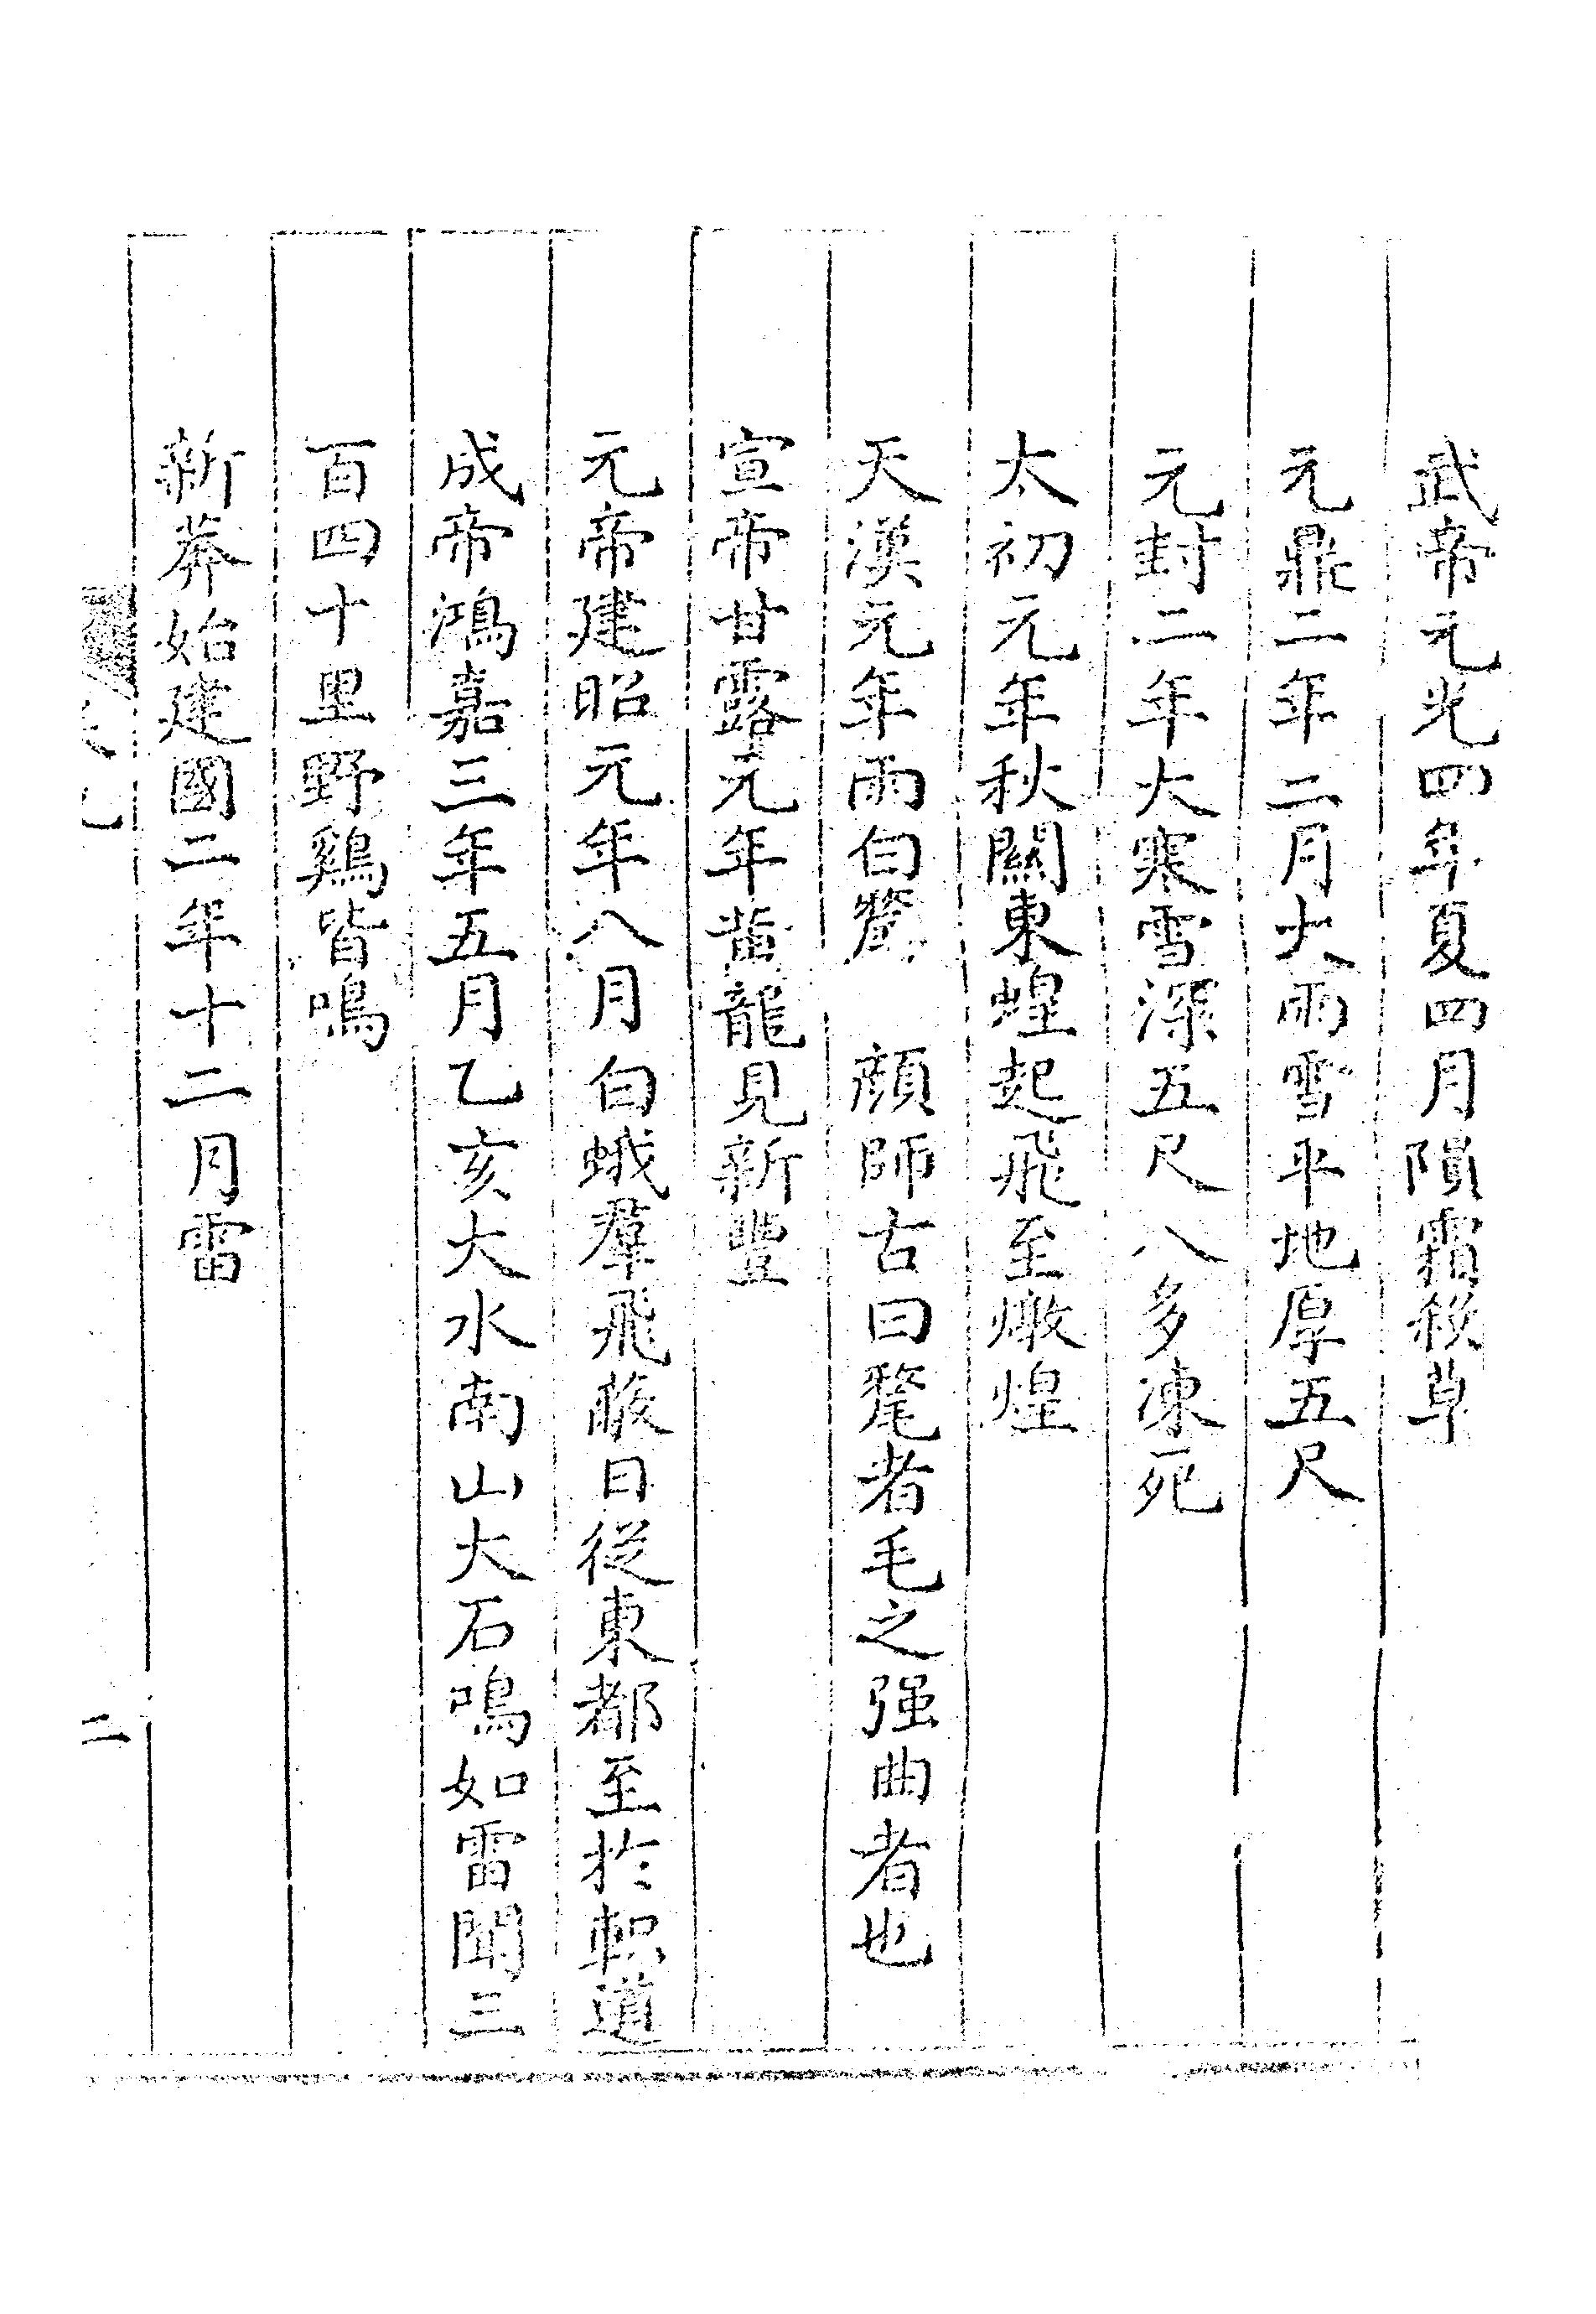 武帝元光四年夏四月隕霜殺草
元鼎二年二月大雨雪平地厚五尺
元封二年大寒雪深五尺人多凍死
太初元年秋關東蝗起飛至燉煌
天漢元年雨白氂　顔師古曰氂者毛之强曲者也
宣帝甘露元年黄龍見新豐
元帝建昭元年八月白蛾羣飛蔽日從東都至於軹道
成帝鴻嘉三年五月乙亥大水南山大石鳴如雷聞三
百四十里野鷄皆鳴
新莽始建國二年十二月雷
二